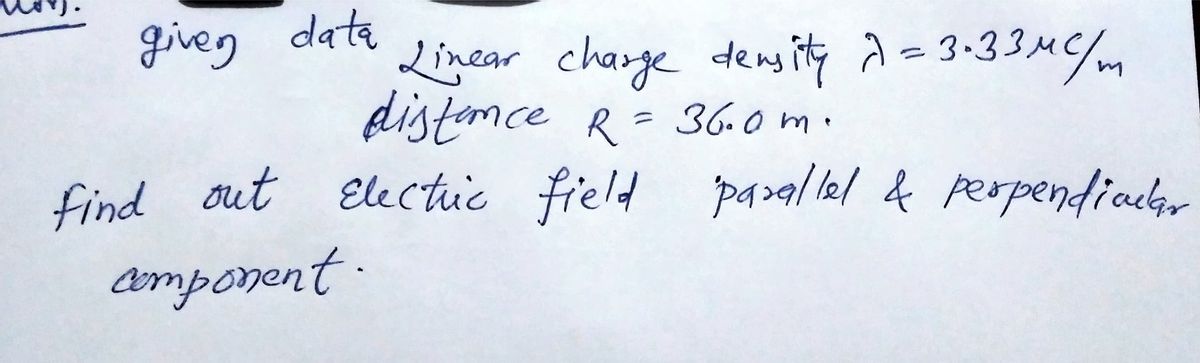 given data
Linear charge density λ = 3.33 μC/m
distance R = 36.0 m.
find out Electric field parallel & perpendicular
component.